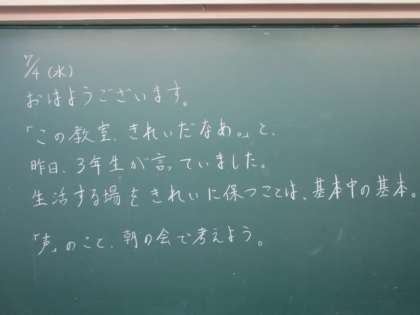 7/4(水)
おはようございます。
「この教室、きれいだなあ。」と、
昨日、3年生が言っていました。
生活する場をきれいに保つことは、基本中の基本。
「声」のこと、朝の会で考えよう。